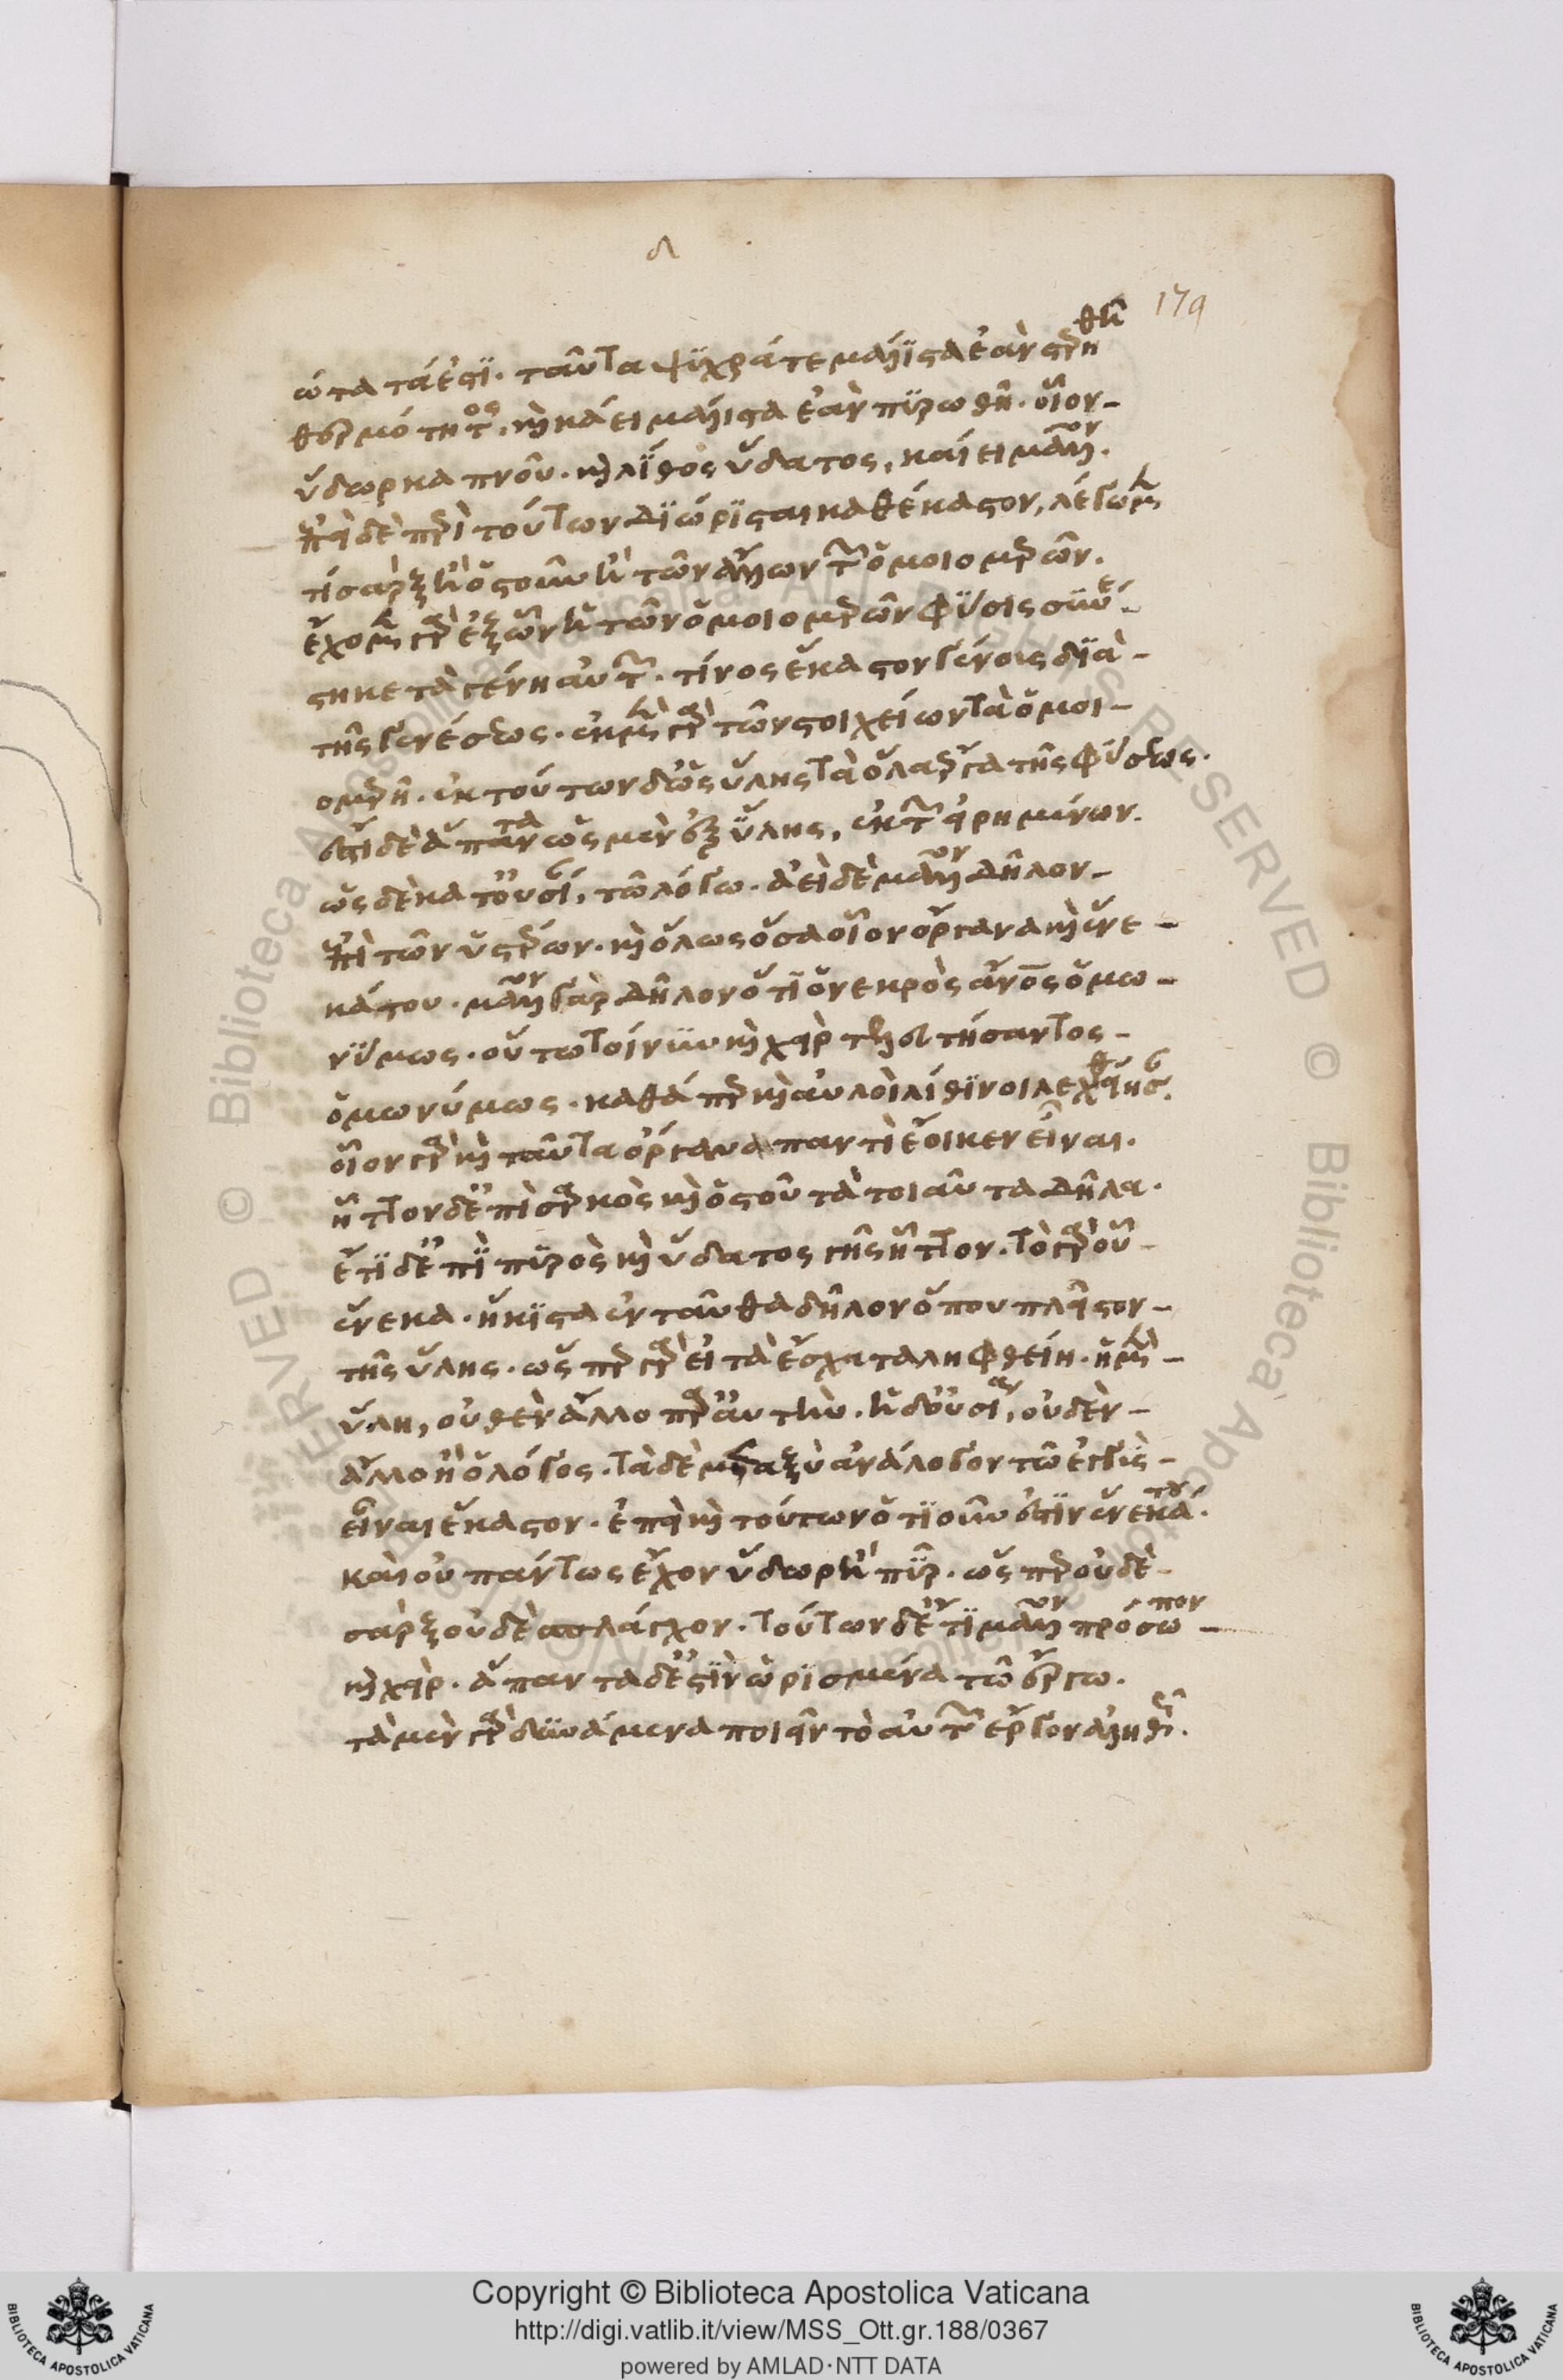 δ
179
ώτατά ἐστι· ταῦτα ψυχρά τε μάλιστα ἐὰν στερηθῆ
θερμότητος. καὶ κάει μάλιστα ἐὰν πυρωθῆ. οἷον
ὕδωρ καπνοῦ. καὶ λίθος ὕδατος, κάει μᾶλλον.
ἐπεὶ δὲ περὶ τούτων διώρισται καθέκαστον, λέγωμεν
τί σὰρξ ἢ ὀστοῦν ἢ τῶν ἄλλων τῶν ὁμοιομερῶν.
ἔχομεν γὰρ ἐξ ὧν ἡ τῶν ὁμοιομερῶν φύσις συνέ
στηκε τὰ γένη αὐτῶν. τίνος ἕκαστον γένοις διὰ
τῆς γενέσεως. ἐκ μὲν γὰρ τῶν στοιχείων τὰ ὁμοι
ομερῆ. ἐκ τούτων δ' ὡς ὕλης τὰ ὅλα ἔργα τῆς φύσεως.
ἔστι δὲ ἅπαντα ὡς μὲν ἐξ ὕλης, ἐκ τῶν εἰρημένων.
ὡς δὲ κατ' οὐσίαν, τῶ λόγω. ἀεὶ δὲ μᾶλλον δῆλον
ἐπὶ τῶν ὑστέρων. καὶ ὅλως ὅσα οἷον ὄργανα καὶ ἕνε
κά του. μᾶλλον γὰρ δῆλον ὅτι ὁ νεκρὸς ἄνος ὁμω
νύμως. οὕτω τοίνυν καὶ χεὶρ τελευτήσαντος
ὁμωνύμως. καθάπερ καὶ αὐλοὶ λίθινοι λεχθείησαν.
οἷον γὰρ καὶ ταῦτα ὄργανα παντὶ ἔοικεν εἶναι.
ἧττον δ' ἐπὶ σαρκὸς καὶ ὀστοῦ τὰ τοιαῦτα δῆλα.
ἔτι δ' ἐπὶ πυρὸς καὶ ὕδατος γῆς ἧττον. τὸ γὰρ οὗ
ἕνεκα. ἥκιστα ἐνταῦθα δῆλον ὅπου πλεῖστον
τῆς ὕλης. ὥσπερ γὰρ εἰ τὰ ἔσχατα ληφθείη. ἡ μὲν
ὕλη, οὐθὲν ἄλλο παρ' αὐτὴν. ἡ δ' οὐσία, οὐδὲν
ἄλλο ἢ ὁ λόγος. τὰ δὲ μεταξὺ ἀνάλογον τῶ ἐγγὺς
εἶναι ἕκαστον. ἐπεὶ καὶ τούτων ὁτιοῦν ἐστὶν ἕνεκά του.
καὶ οὐ πάντως ἔχον ὕδωρ ἢ πῦρ. ὥσπερ οὐδὲ
σὰρξ οὐδὲ σπλάγχον. τούτων δ' ἔτι μᾶλλον πρόσωπον
καὶ χεὶρ. ἅπαντα δ' ἐστὶν ὡρισμένα τῶ ἔργω.
τὰ μὲν γὰρ δυνάμενα ποιεῖν τὸ αὐτῶν ἔργον ἀληθῶς.
Copyright © Biblioteca Apostolica Vaticana
http://digi.vatlib.it/view/MSS_Ott.gr.188/0367
powered by AMLAD·NTT DATA